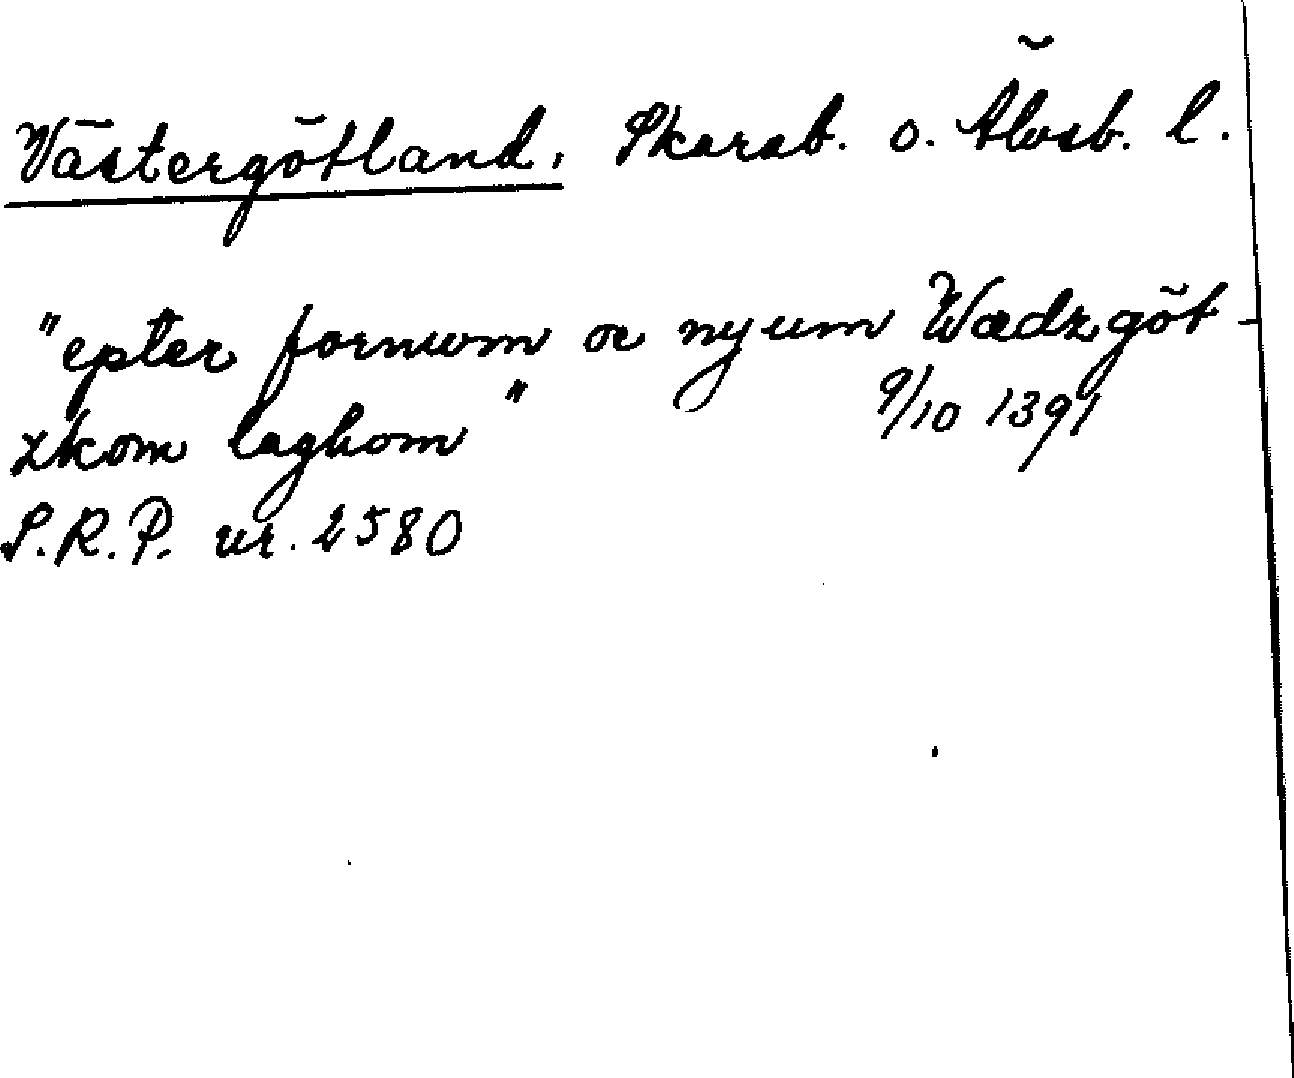 Västergötland. Skarab. o. Älvsb. l.
"epter fornum oc nyum Wædzgöt-
zkom laghom" 9/10 1391
S.R.P. nr. 2580